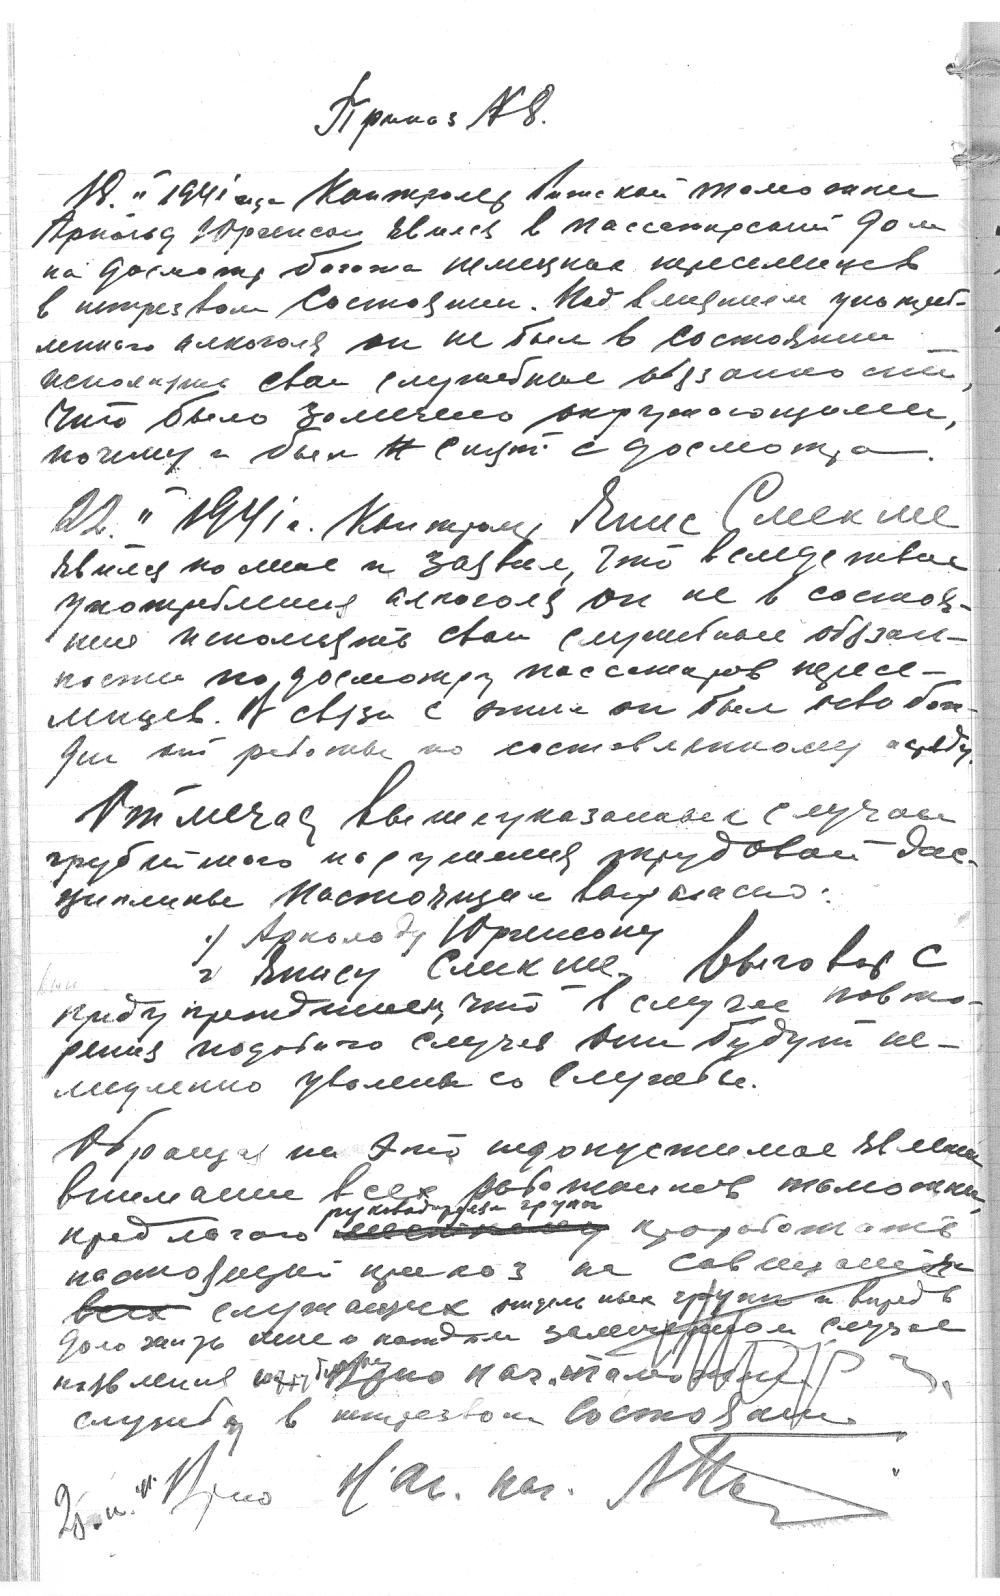 Приказ № 8.
18.II 1941 года Контролер Рижской таможни
Арнольд Юргенсон явился в пассажирский дом
на досмотр багажа немецких переселенцев
в нетрезвом состоянии. Под влиянием употреб-
ленного алкоголя он не был в состоянии
исполнять свои служебные обязанности,
что было замечено окружающими,
почему и был снят с досмотра.
22.II 1941 г. Контролер Янис Смекше
явился ко мне и заявил, что вследствие
употребления алкоголя он не в состоя-
нии исполнять свои служебные обязан-
ности по досмотру пассажиров пересе-
ленцев. В связи с этим он был освобож-
ден от работы по составленному наряду.
Отмечая вышеуказанные случаи
грубейшего нарушения трудовой дис-
циплины настоящим выражаю:
1) Арнольду Юргенсону
2 Янису Смекше, выговор с
предупреждением, что в случае повто-
рения подобного случая они будут не-
медленно уволены со службы.
Обращая на это недопустимое явление
внимание всех работников таможни,
руководителям групп
предлагаю проработать
настоящий приказ на совещаниях
всех служащих отдельных групп и впредь
доложить мне о каждом замеченном случае
явления нач. таможни
службу в нетрезвом состоянии.
Нач.